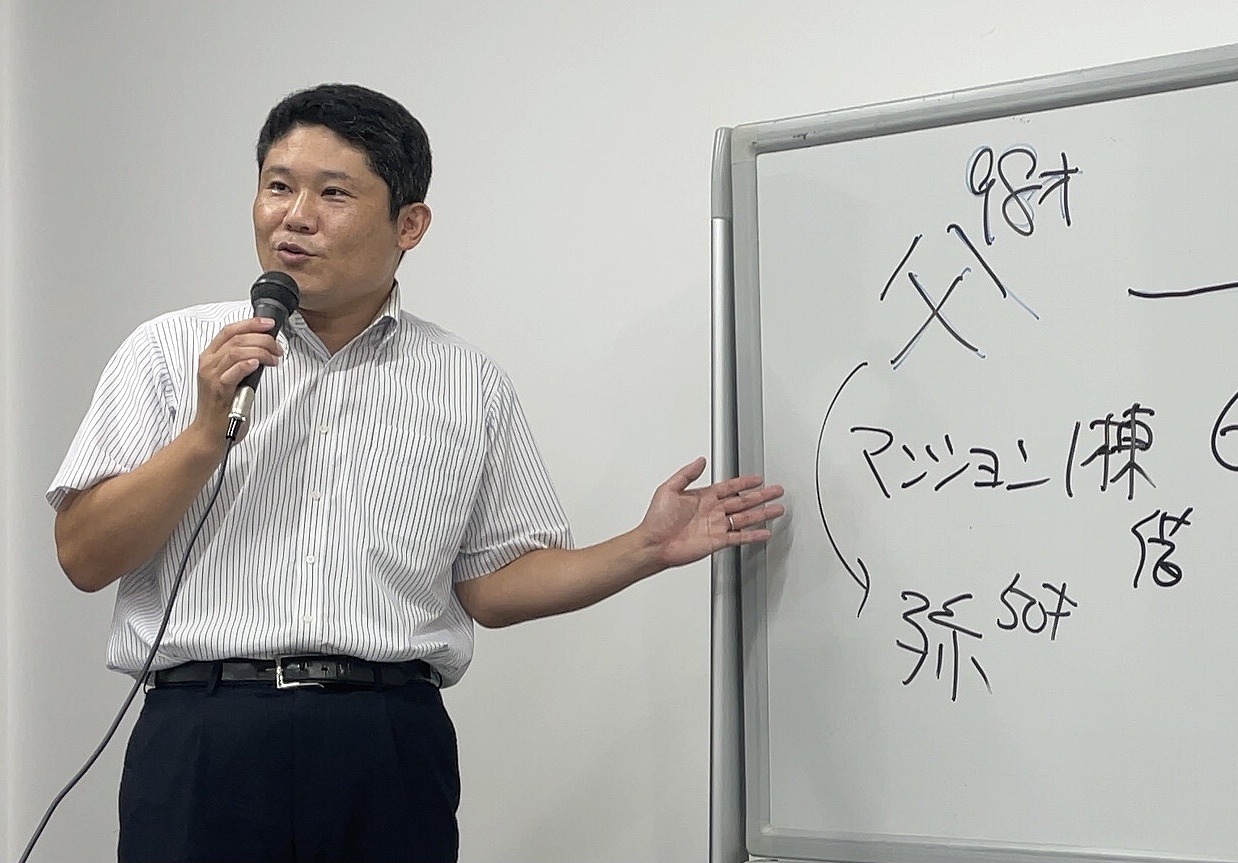 98才
父
マンション1棟
借
孫 50才